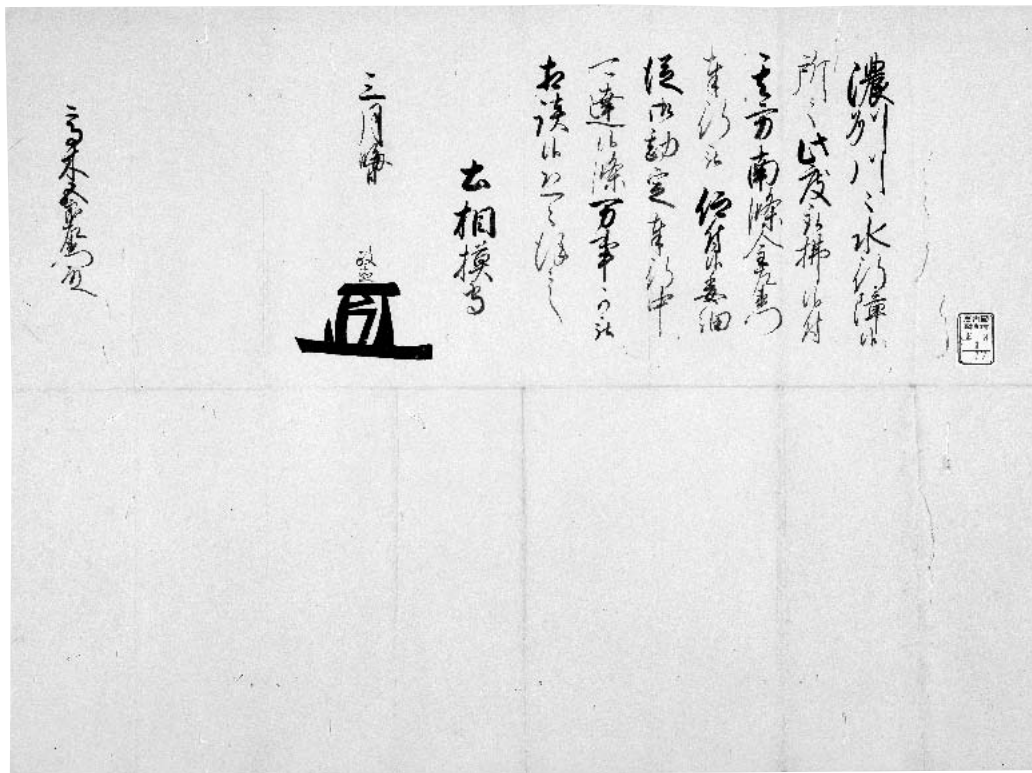 濃州川々水行障候
所々此度取拂候付
其方南條金左衛門
奉行被 仰付候委細
従御勘定奉行中
可達候條万事可被
相談候恐々謹言
土相摸守
三月晦日
政直
高木五郎左衛門殿